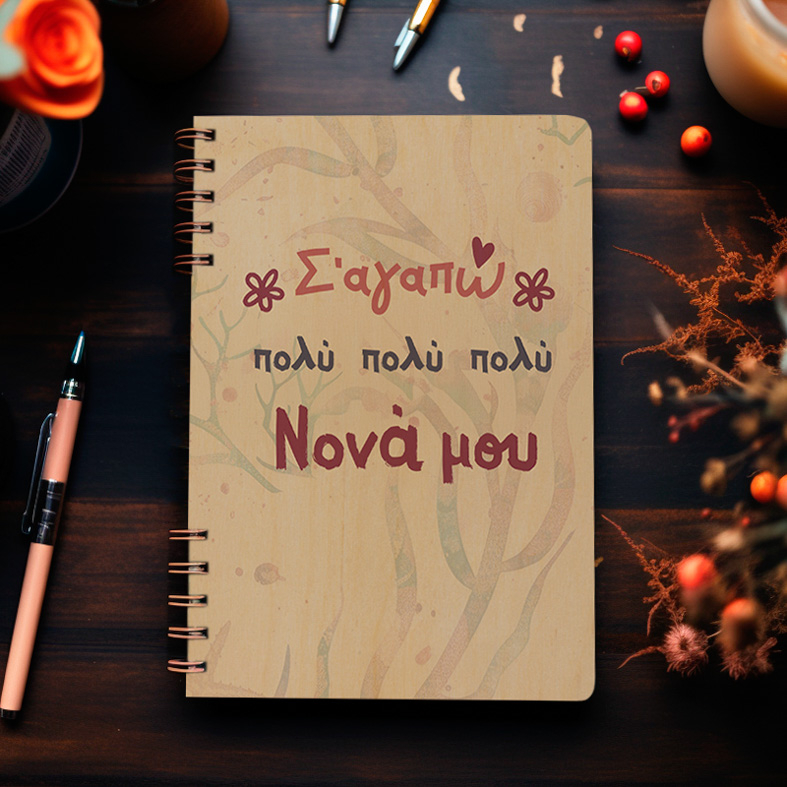 Σ'αγαπώ
πολύ πολύ πολύ
Νονά μου